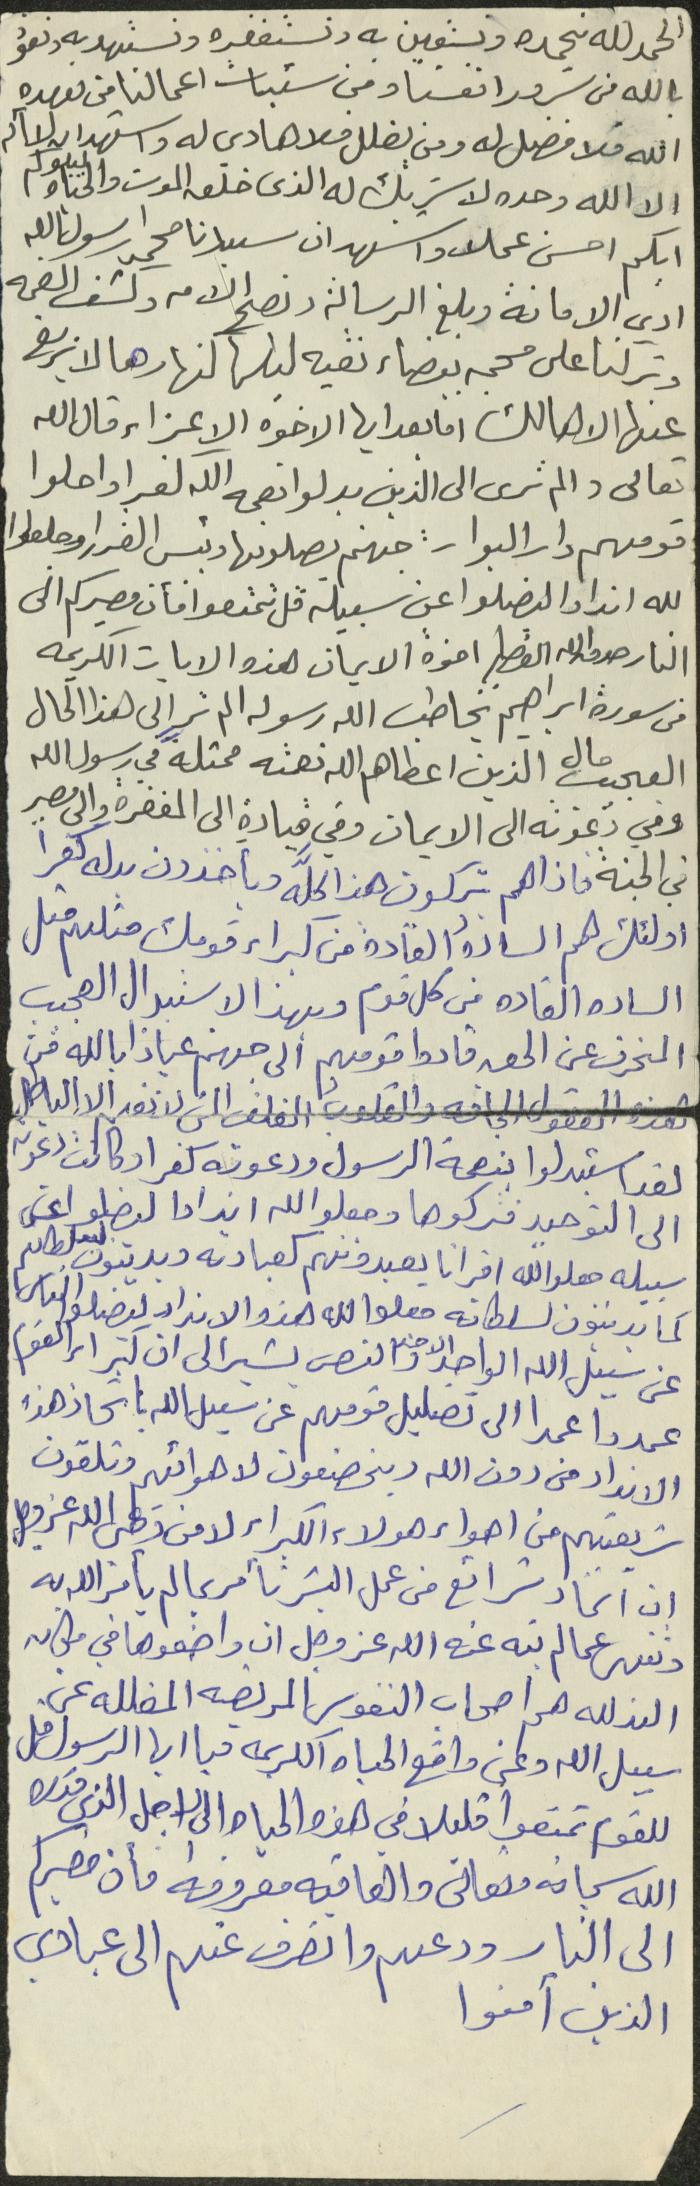 الحمد لله نحمده ونستعين به ونستغفره ونستهديه ونعوذ
بالله من شرور انفسنا ومن سيئات اعمالنا من يهده
الله فلا مضل له ومن يضلل فلا هادي له واشهد ان لا اله
الا الله وحده لا شريك له الذى خلق الموت والحياه ليبلوكم
ايكم احسن عملا واشهد ان سيدنا محمدا رسول الله
ادي الامانة وبلغ الرسالة ونصح الامه وكشف الغمه
وتركنا على محجه بيضاء نقيه ليلها كنهارها لا يزيغ
عنها الا هالك اما بعد ايها الاخوه الاعزاء قال الله
تعالى والم ترى الى الذين بدلوا نعمه الله كفرا واحلوا
قومهم دار البوار جهنم يصلونها وبئس القرار وجعلوا
لله اندادا ليضلوا عن سبيله قل تمتعوا فأن مصيركم الى
النار صدق الله العظيم اخوة الايمان هذه الايات الكريمه
من سورة ابراهيم يخاطب الله رسوله الم تر الى هذا الحال
العجيب حال الذين اعطاهم الله نعمته ممثلة في رسول الله
وفي دعوته الى الايمان وفي قيادة الى المغفرة والى مصير
في الجنة فاذاهم يتركون هذا كلَّه ويأخذون بدله كفرا
اولئك هم السادة القادة من كبراء قومك مثلهم مثل
الساده القاده من كل قوم وبهذا الاستبدال العجيب
المنحرف عن الحق قادوا قومهم الى جهنم عياذا بالله من
هذه العقول الجافه والقلوب الغلف التى لا تفهم الا الباطل
لقد استبدلوا بنعمة الرسول ودعوته كفرا وكانت دعوته
الى التوحيد فتركوها وجعلو الله اندادا ليضلوا عن
سبيله جعلو الله اقرانا يعبدونهم كعبادته ويدينون لسلطانهم
كما يدينون لسلطانه جعلوا لله هذه الانداد ليضلوا الناس
عن سبيل الله الواحد الاحد والنص يشير الى ان كبراء القوم
عمدوا عمدا الى تضليل قومهم عن سبيل الله باتخاذ هذه
الانداد من دون الله ويخضعون لاهوائهم وتلقون
شريعتهم من اهواء هولاء الكبراء لا من وحى الله عز وجل
ان اتخاذ شرائع من عمل البشر تأمر بما لم يأمر الله به
وتنهى عما لم ينه عنه الله عز وجل ان واضعوها في مكانه
الند لله هم اصحاب النفوس المريضه المضلله عن
سبيل الله وعن واقع الحياه الكريمه فيا ايها الرسول قل
للقوم تمتعوا قليلا في هذه الحياه الى الاجل الذي قدره
الله سبحانه وتعالى والعاقبه معروفه فأن مصيركم
الى النار ودعهم وانصرف عنهم الى عبادي
الذين آمنوا